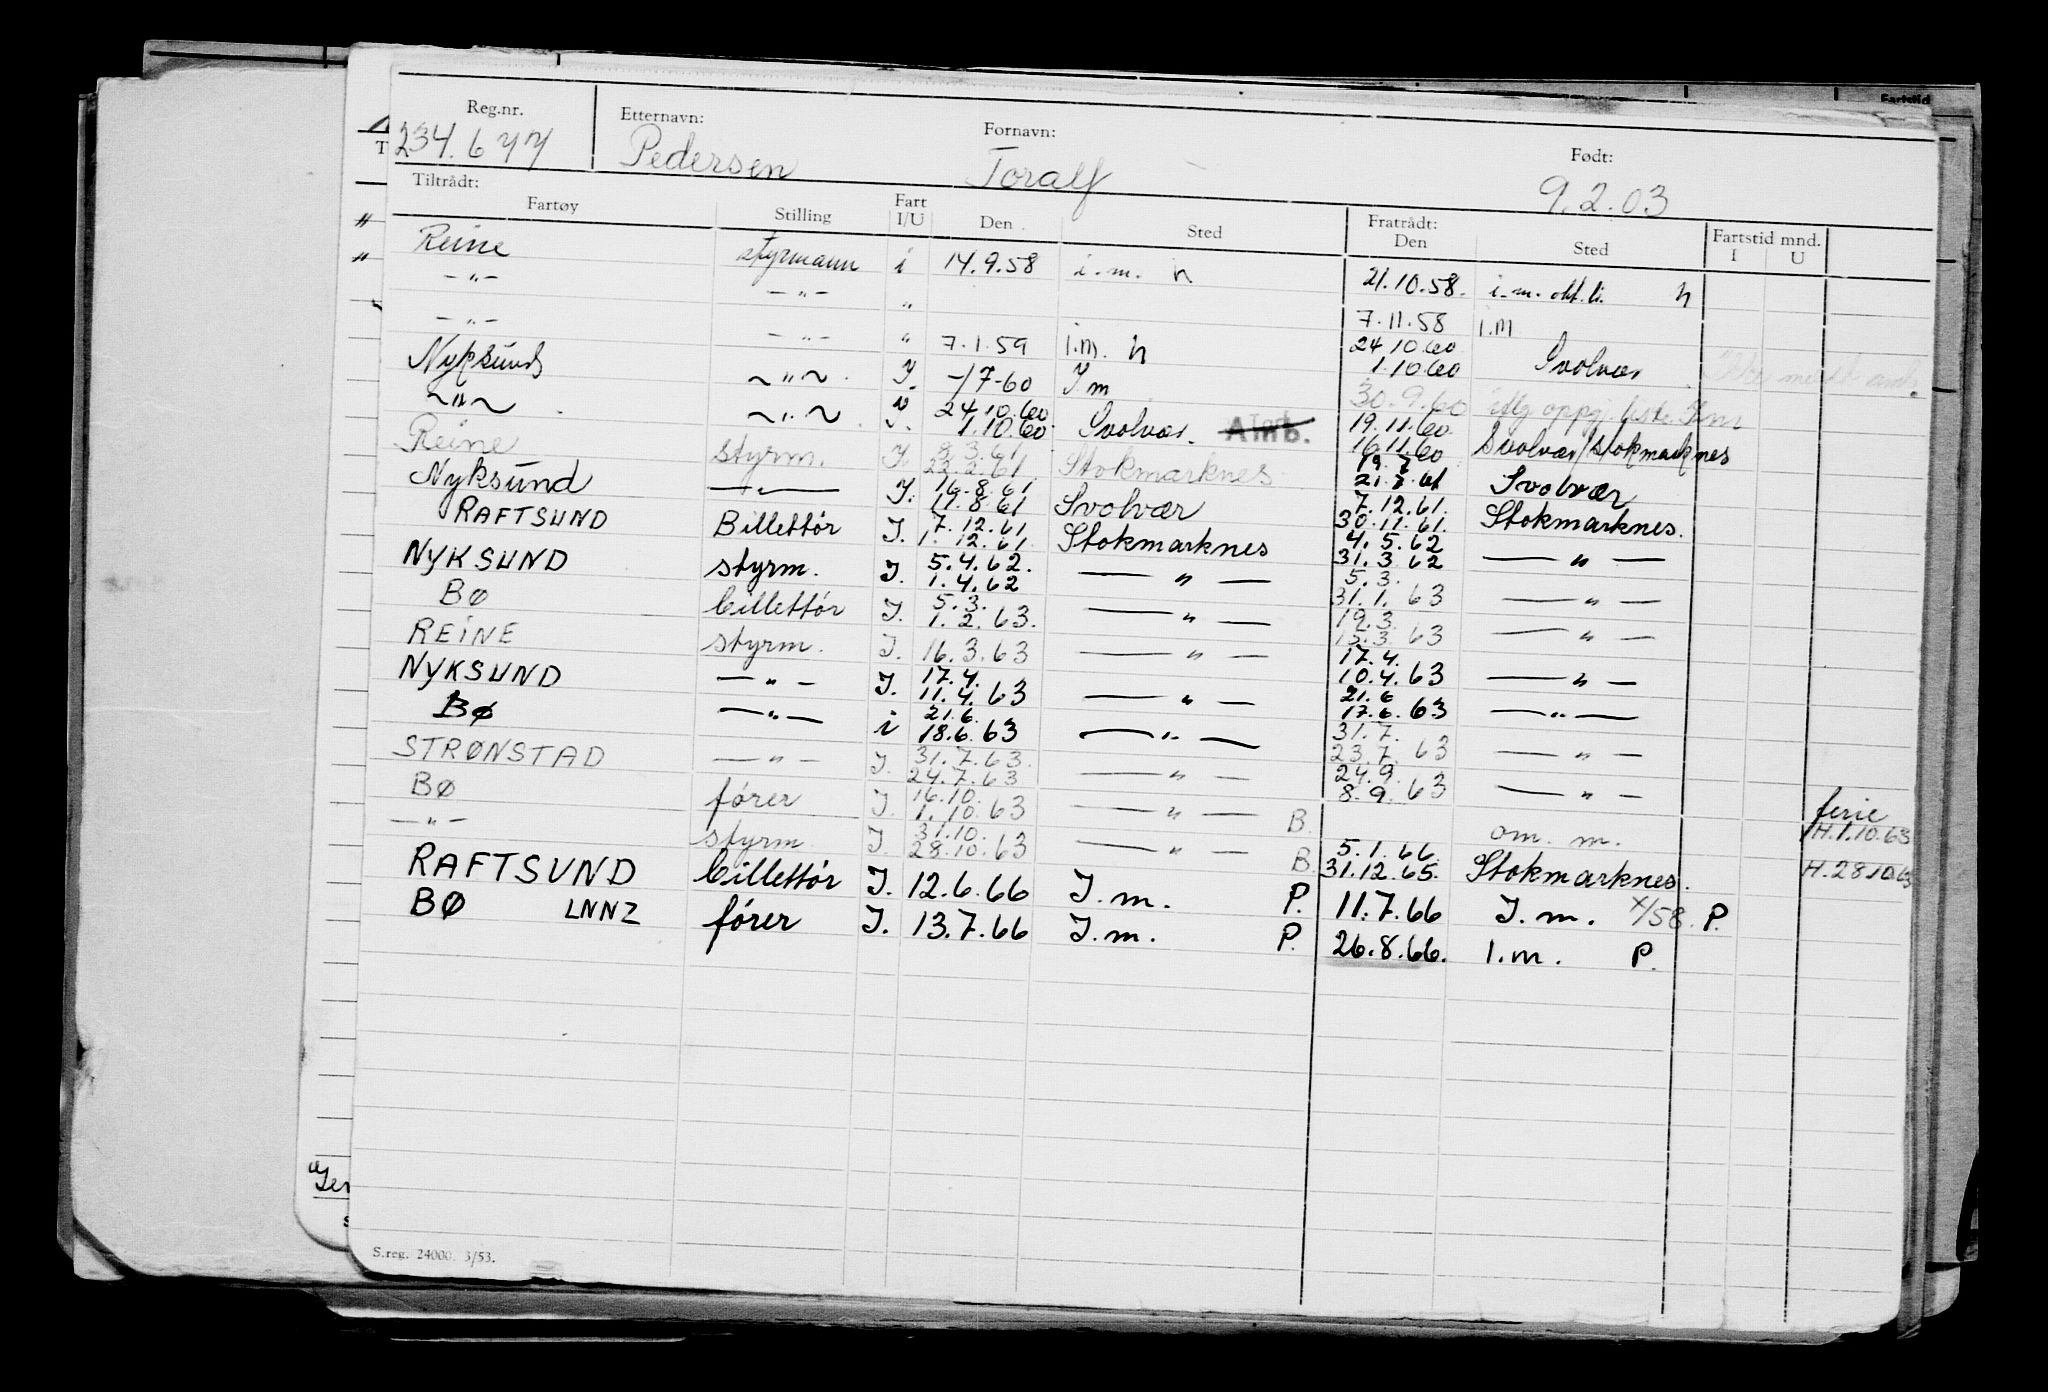 Fartstid
Reg.nr. Etternavn: Fornavn: Født:
234.677 Pedersen Toralf 9.2.03
Tiltrådt: Fratrådt:
Fartøy Stilling Fart I/U Den Sted Den Sted Fartstid mnd. I U
Reine styrmann i 14.9.58 i.m. h 21.10.58. i.m. okt.li. h
—"— —"— " 7.11.58 i.m
—"— —"— " 7.1.59 i.m. h 24.10.60 1.10.60 Svolvær Ikke
Nyksund ~"~ I. -/7-60 I m 30.9.60 iflg oppgj. liste
~"~ ~"~ I. 24.10.60 1.10.60 Svolvær. Amb. 19.11.60 16.11.60 Svolvær/Stokmarknes
Reine styrm. I. 8.3.61 22.2.61 Stokmarknes 21.7.61 Svolvær
Nyksund —"— I. 16.8.61 11.8.61 Svolvær 7.12.61. 30.11.61. Stokmarknes.
RAFTSUND Billettør I. 7.12.61 1.12.61 Stokmarknes 4.5.62 31.3.62 —"—
NYKSUND styrm. I. 5.4.62. 1.4.62 —"— 5.3. 31.1. 63 —"—
BØ billettør I. 5.3. 1.2.63. —"— 19.3. 15.3. 63 —"—
REINE styrm. I. 16.3.63 —"— 17.4. 10.4.63 —"—
NYKSUND —"— I. 17.4. 11.4.63 —"— 21.6 17.6.63 —"—
BØ —"— i 21.6. 18.6.63 —"— 31.7. 23.7. 63 —"—
STRØNSTAD —"— I. 31.7.63. 24.7.63 —"— 24.9. 8.9. 63 —"—
BØ fører I. 16.10. 1.10.63 —"— B. om. m. ferie H.1.10.63
—"— styrm. I. 31.10. 28.10.63 —"— B. 5.1.66. 31.12.65. Stokmarknes. H.28.10.63
RAFTSUND billettør I. 12.6.66 I.m. P. 11.7.66 I.m. X/58. P.
BØ LNNZ fører I. 13.7.66 I.m. P. 26.8.66. I.m. P.
S.reg. 24000. 3/53.